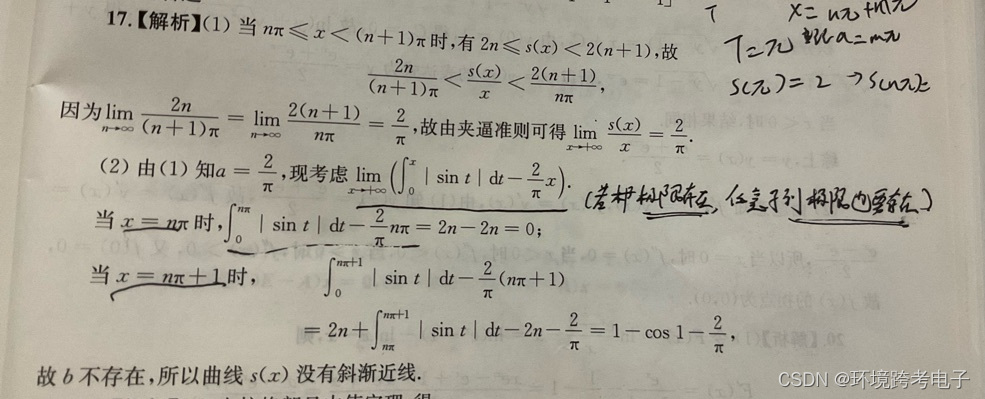 17.【解析】(1) 当 nπ ≤ x < (n+1)π 时,有 2n ≤ s(x) < 2(n+1),故
2n/((n+1)π) < s(x)/x < 2(n+1)/(nπ),
因为 lim_{n→∞} 2n/((n+1)π) = lim_{n→∞} 2(n+1)/(nπ) = 2/π,故由夹逼准则可得 lim_{x→+∞} s(x)/x = 2/π.
(2) 由(1) 知 a = 2/π,现考虑 lim_{x→+∞} (∫_0^x | sin t | dt − 2/π x).
(若 极限存在, 任意子列极限也要存在)
当 x = nπ 时,∫_0^{nπ} | sin t | dt − 2/π nπ = 2n − 2n = 0;
当 x = nπ + 1 时, ∫_0^{nπ+1} | sin t | dt − 2/π (nπ + 1)
= 2n + ∫_{nπ}^{nπ+1} | sin t | dt − 2n − 2/π = 1 − cos 1 − 2/π,
故 b 不存在,所以曲线 s(x) 没有斜渐近线.
T
T = π a = mπ
s(π) = 2 → s(nπ)
CSDN @环境跨考电子